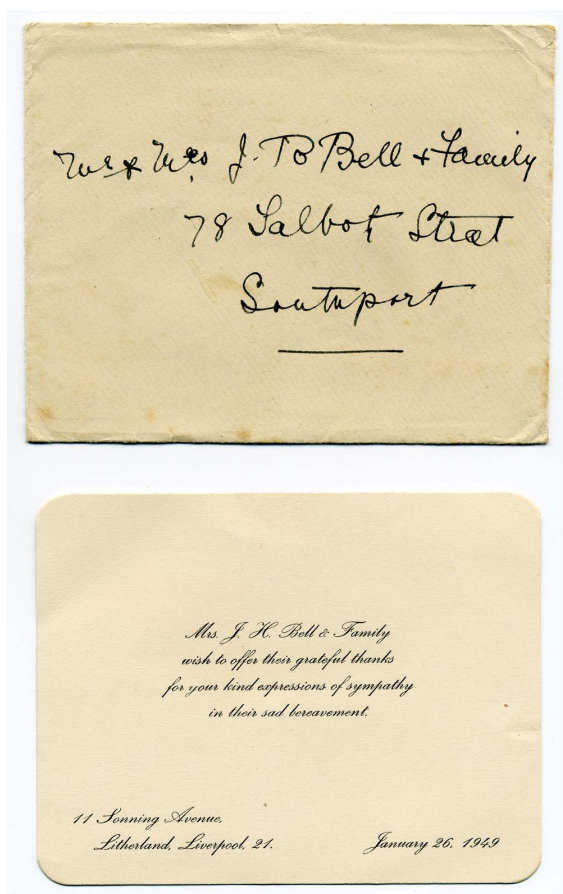 Mr & Mrs J. To Bell & Family
78 Talbot Street
Southport
Mrs. J. H. Bell & Family
wish to offer their grateful thanks
for your kind expressions of sympathy
in their sad bereavement.
11 Sonning Avenue,
Litherland, Liverpool, 21.
January 26, 1949